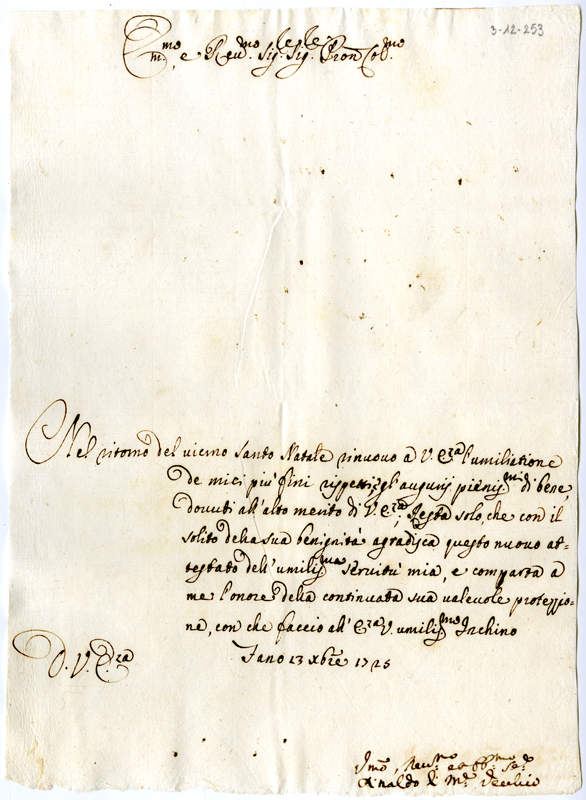 3-12-253
Em̃o, e Reu^mo Sig.^re Sig.^re Pron Col^mo
Nel ritorno del vicino Santo Natale rinuovo a V. Ecza l'umiliatione
de miei più fini rispetti, gl'augurij pienis^mi di bene,
dovuti all'alto merito di V. Ecza; Resta solo, che con il
solito della sua benignità agradisca questo nuovo at=
testato dell'umilis^ma servitù mia, e comparta a
me l'onore della continuata sua valevole protezzio-
ne, con che faccio all' Ecza V. umilis^mo Inchino
D. V. E.za
Fano 13 Xbre 1725
Reu^mo et Obb^mo Se.re
Rinaldo